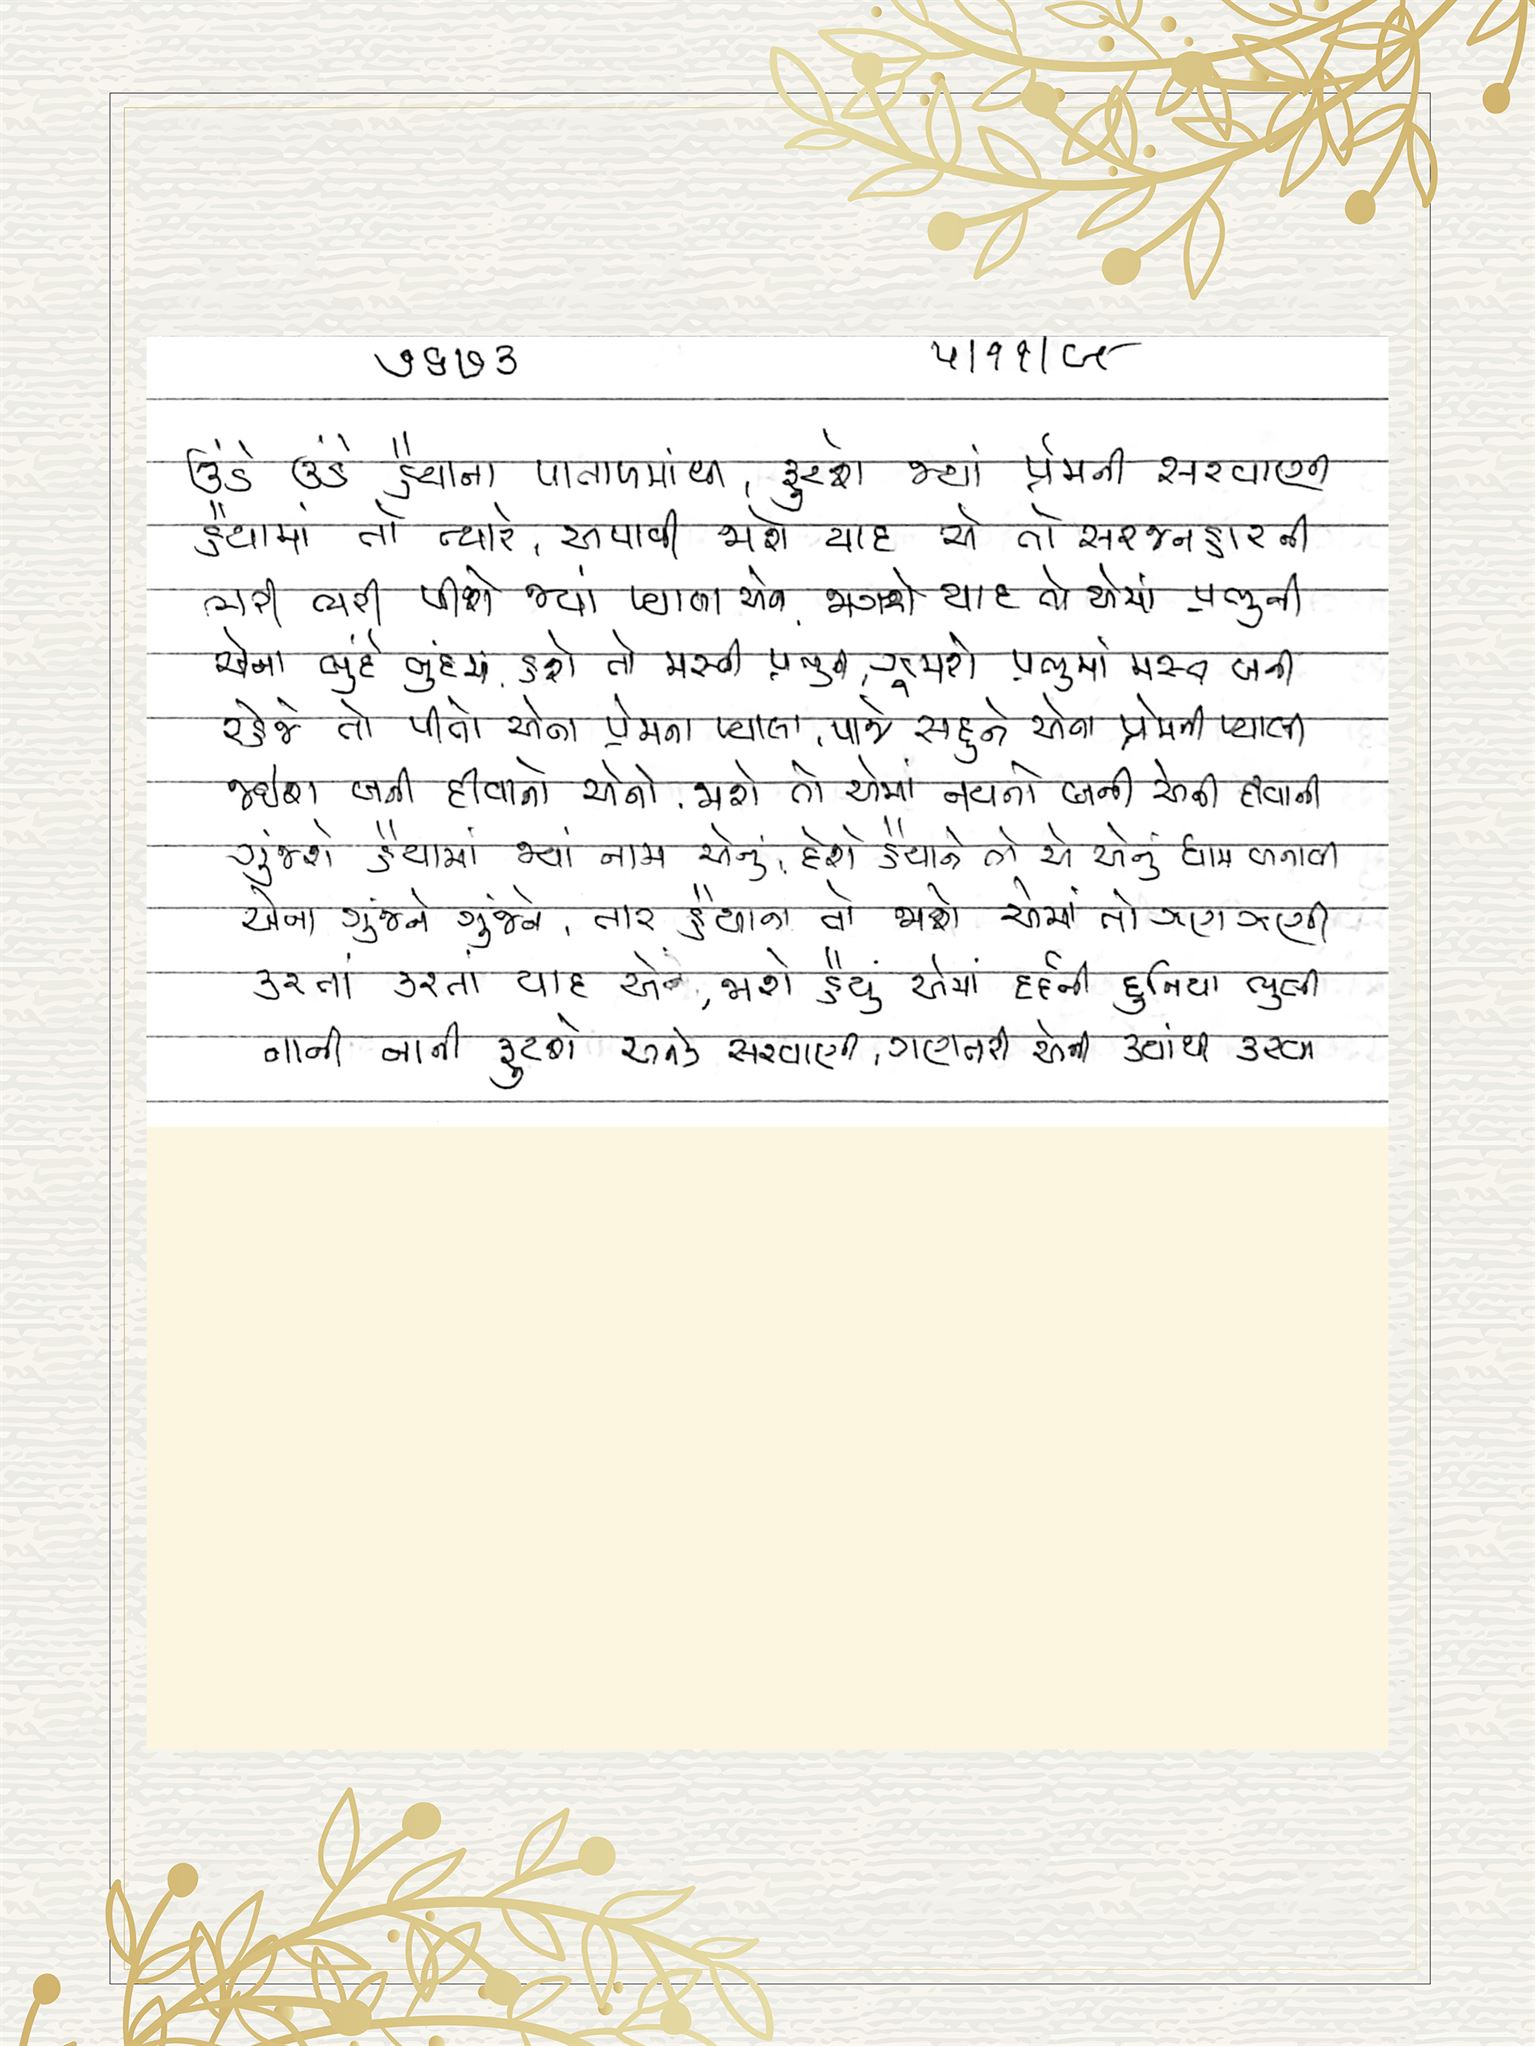 ૭૬૭૩ ૫/૧૧/૯૮
ઊંડે ઊંડે હૈયાના પાતાળમાંથી, ફુટશે જ્યાં પ્રેમની સરવાણી
હૈયામાં તો ત્યારે, અપાવી જાશે યાદ એ તો સરજનહારની
ભરી ભરી પીશે જ્યાં પ્યાલા એના, જાગશે યાદ તો એમાં પ્રભુની
એના બુંદે બુંદમાં, હશે તો મસ્તી પ્રભુની, ઝૂમશે પ્રભુમાં મસ્ત બની
રહેજે તો પીતો એના પ્રેમના પ્યાલા, પાજે સહુને એના પ્રેમની પ્યાલી
જાશે બની દીવાનો એનો, જાશે તો એમાં નયનો બની એની દીવાની
ગુંજશે હૈયામાં જ્યાં નામ એનું, દેશે હૈયાને તો એ એનું ધામ બનાવી
એના ગુંજને ગુંજને, તાર હૈયાના તો જાશે એમાં તો ઝણઝણી
કરતાં કરતાં યાદ એને, જાશે હૈયું એમાં દર્દની દુનિયા ભુલી
નાની નાની ફુટશે અનેક સરવાણી, ગણતરી એની ક્યાંથી કરવી